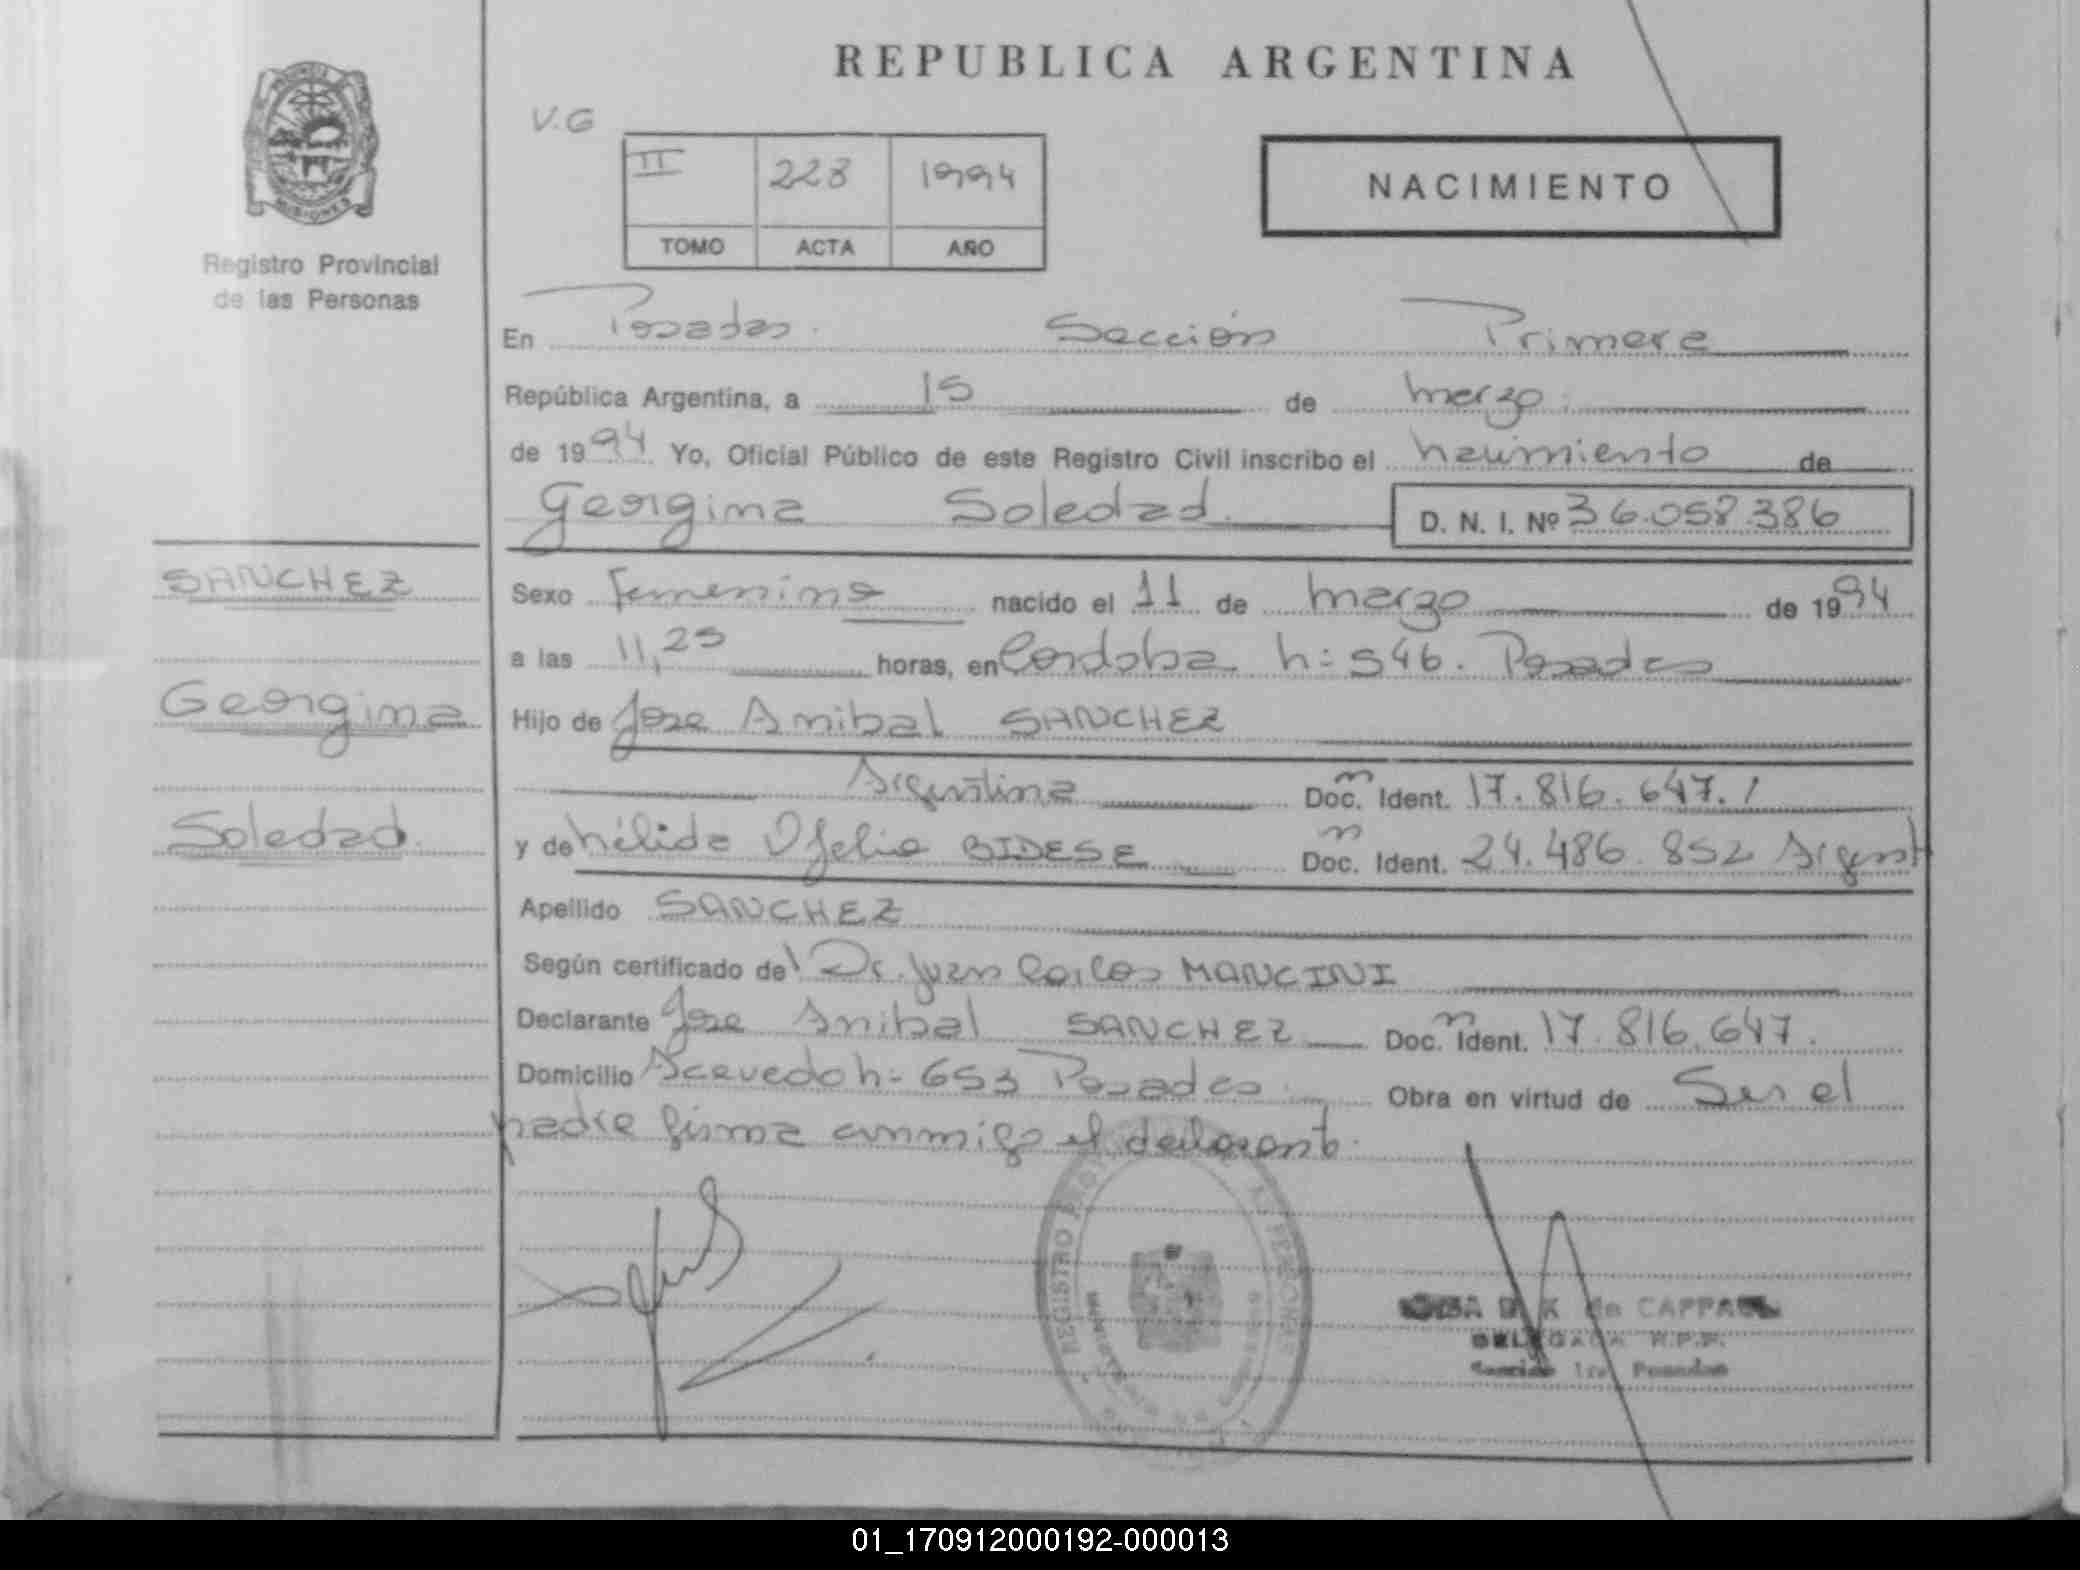 REPUBLICA ARGENTINA
V.G
II 223 1994
TOMO ACTA AÑO
NACIMIENTO
MISIONES
Registro Provincial
de las Personas
En Posadas. Sección Primera
República Argentina, a 15 de marzo
de 1994 Yo, Oficial Público de este Registro Civil inscribo el nacimiento de
Georgina Soledad. D. N. I. Nº 36.058.386
SANCHEZ
Georgina
Soledad.
Sexo femenino nacido el 11 de marzo de 1994
a las 11,25 horas, en Cordoba n: 546. Posadas
Hijo de Jose Anibal SANCHEZ
Argentina Doc. Ident. 17.816.647.
y de Nélida Ofelia BIDESE Doc. Ident. 24.486.852 Argent
Apellido SANCHEZ
Según certificado del Dr. Juan Carlos MANCINI
Declarante Jose Anibal SANCHEZ Doc. Ident. 17.816.647.
Domicilio Acevedo n: 653 Posadas. Obra en virtud de Ser el
padre firma conmigo el declarant.
REGISTRO PERSONAS
de CAPPA
DELEGADA R.P.P.
Sección 1ra Posadas
01_170912000192-000013